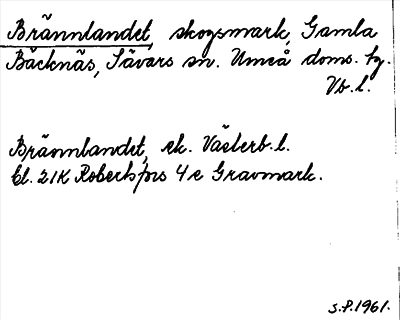 Brännlandet, skogsmark, Gamla
Bäcknäs, Sävars sn. Umeå doms. tg.
Vb. l.
Brännlandet, ek. Västerb. l.
Bl. 21K Robertsfors 4 e Gravmark.
S.P. 1961.